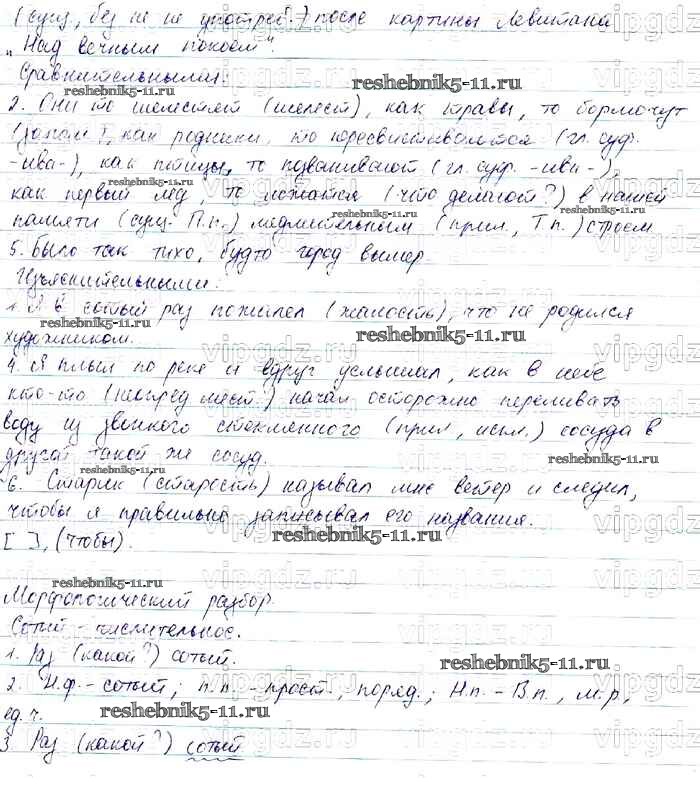 (сущ., без не не употреб.) после картины Левитана
„Над вечным покоем".
Сравнительными:
2. Они то шелестят (шелест), как травы, то бормочут
как родники, то пересвистываются (гл. суф.
-ива-), как птицы, то позванивают (гл. суф. -ива-),
как первый лёд, то ложатся (что делают?) в нашей
памяти (сущ. П.п.) медлительным (прил., Т.п.) строем
5. Было так тихо, будто город вымер
Изъяснительными:
1. Я в сотый раз пожалел (жалость), что не родился
художником.
4. Я плыл по реке и вдруг услышал, как в небе
кто-то (неопред. мест.) начал осторожно переливать
воду из звонкого стеклянного (прил., искл.) сосуда в
другой такой же сосуд.
6. Старик (старость) называл мне ветер и следил,
чтобы я правильно записывал его названия.
[ ], (чтобы).
Морфологический разбор.
Сотый – числительное.
1. Раз (какой?) сотый.
2. Н.ф. – сотый; п.п. – прост., поряд.; Н.п. – В.п., м.р,
ед. ч.
3 Раз (какой?) сотый
reshebnik5-11.ru
vipgdz.ru